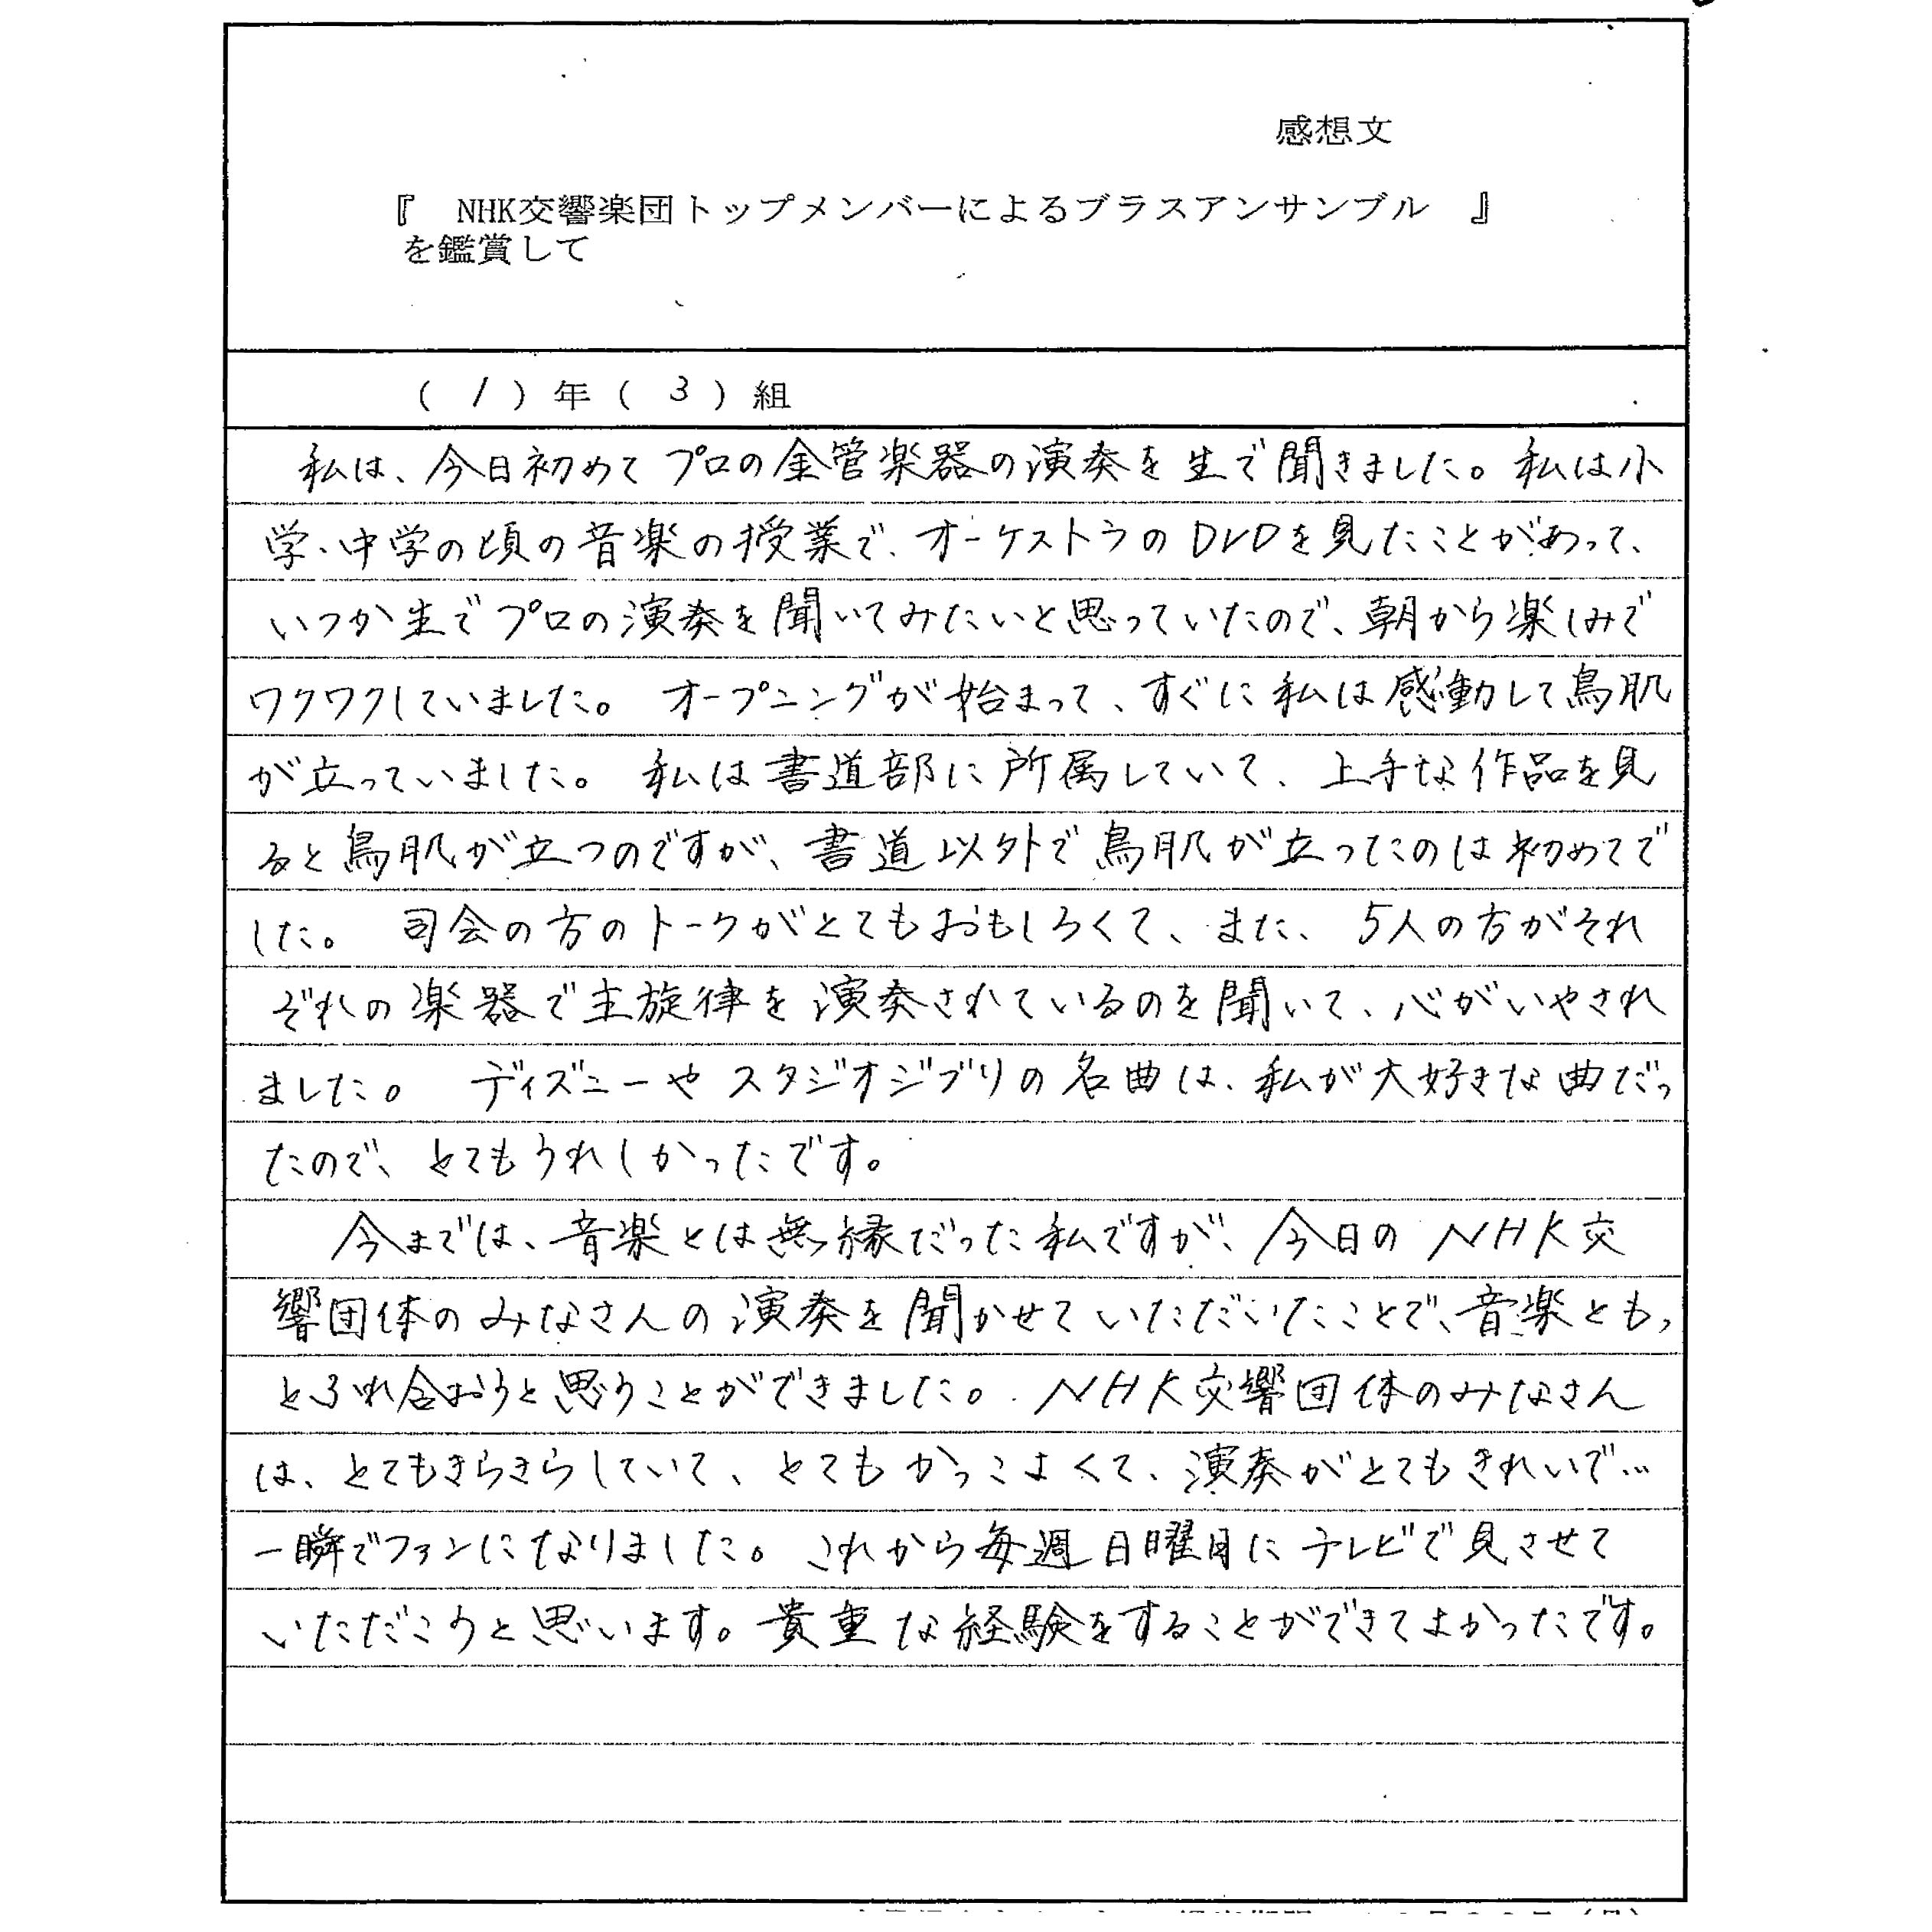 感想文
『　NHK交響楽団トップメンバーによるブラスアンサンブル　』
を鑑賞して
（ 1 ）年（ 3 ）組
私は、今日初めてプロの金管楽器の演奏を生で聞きました。私は小
学、中学の頃の音楽の授業で、オーケストラのDVDを見たことがあって、
いつか生でプロの演奏を聞いてみたいと思っていたので、朝から楽しみで
ワクワクしていました。オープニングが始まって、すぐに私は感動して鳥肌
が立っていました。私は書道部に所属していて、上手な作品を見
ると鳥肌が立つのですが、書道以外で鳥肌が立ったのは初めてで
した。司会の方のトークがとてもおもしろくて、また、5人の方がそれ
ぞれの楽器で主旋律を演奏されているのを聞いて、心がいやされ
ました。ディズニーやスタジオジブリの名曲は、私が大好きな曲だっ
たので、とてもうれしかったです。
今までは、音楽とは無縁だった私ですが、今日のNHK交
響団体のみなさんの演奏を聞かせていただいたことで、音楽ともっ
とふれ合おうと思うことができました。NHK交響団体のみなさん
は、とてもきらきらしていて、とてもかっこよくて、演奏がとてもきれいで…
一瞬でファンになりました。これから毎週日曜日にテレビで見させて
いただこうと思います。貴重な経験をすることができてよかったです。